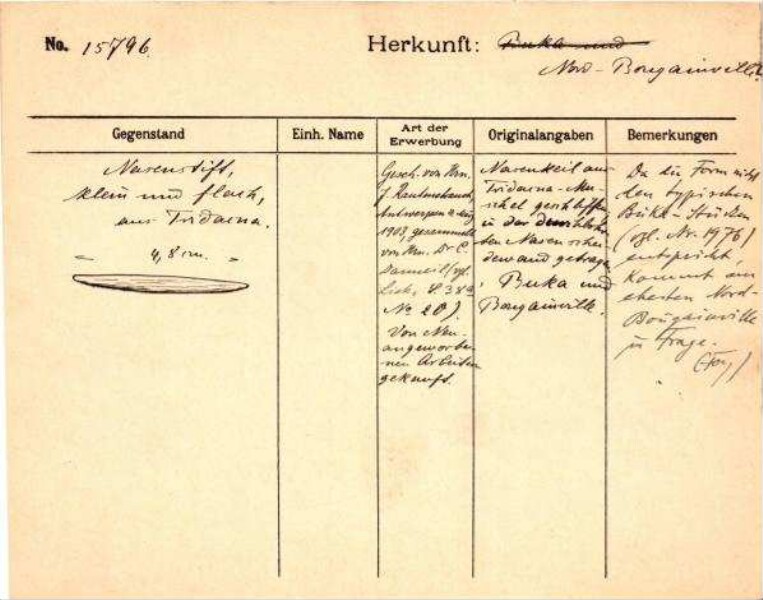 No. 15796
Herkunft: Buka und
Nord-Bougainville.
Gegenstand
Einh. Name
Art der
Erwerbung
Originalangaben
Bemerkungen
Nasenstift,
klein und flach,
aus Tridacna.
4,8 cm.
Gesch. von Hrn.
J. Rautenstrauch,
Antwerpen
1903, gesammelt
von Hrn. Dr. C.
Danneil (vgl.
Lisk, S. 38a
No 20).
Von Neu-
angeworbe-
nen Arbeitern
gekauft.
Nasenkeil aus
Tridacna-Mu-
schel geschliffen,
in der durchbohr-
ten Nasenschei-
dewand getragen,
Buka und
Bougainville.
Da die Form nicht
den typischen
Buka-Stücken
(vgl. Nr. 1976)
entspricht,
kommt am
ehesten Nord-
Bougainville
in Frage.
(Foy)